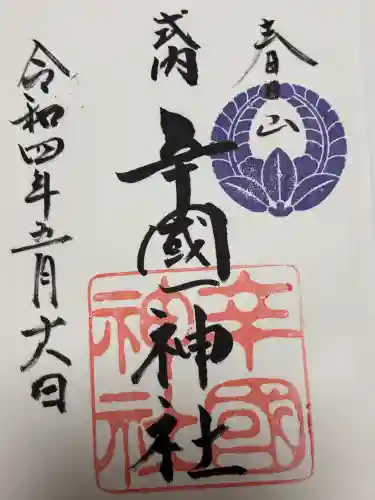 春日山
式内
辛國神社
令和四年五月六日
辛國
神社